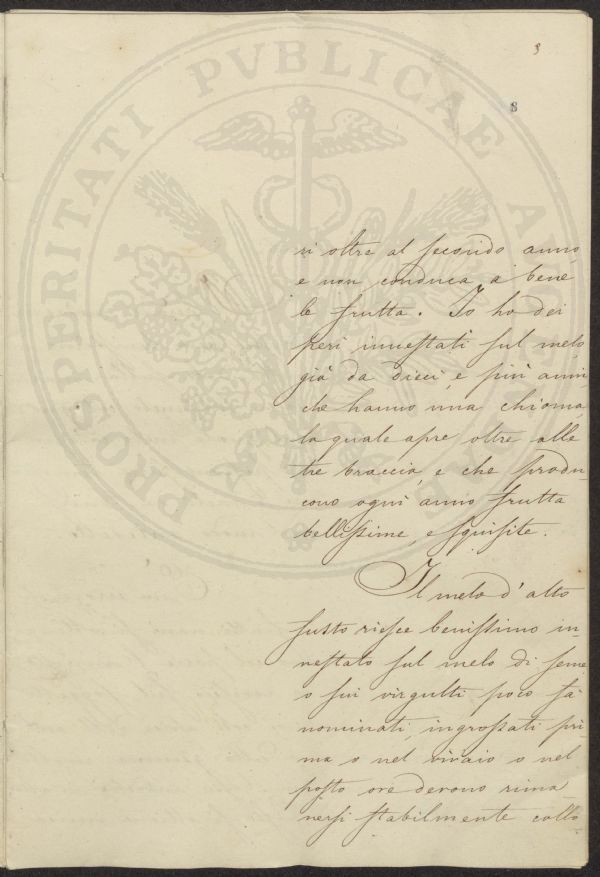 3
8
ri oltre al secondo anno
e non conduca a bene
le frutta. Io ho dei
peri innestati sul melo
già da dieci, e più anni
che hanno una chioma,
la quale apre oltre alle
tre braccia, e che produ-
cono ogni anno frutta
bellissime e squisite.
Il melo d'alto
fusto riesce benissimo in-
nestato sul melo di seme
o sui virgulti poco fà
nominati, ingrossati pri-
ma o nel vivaio o nel
posto ove devono rima-
nersi stabilmente collo
PROSPERITATI PVBLICAE